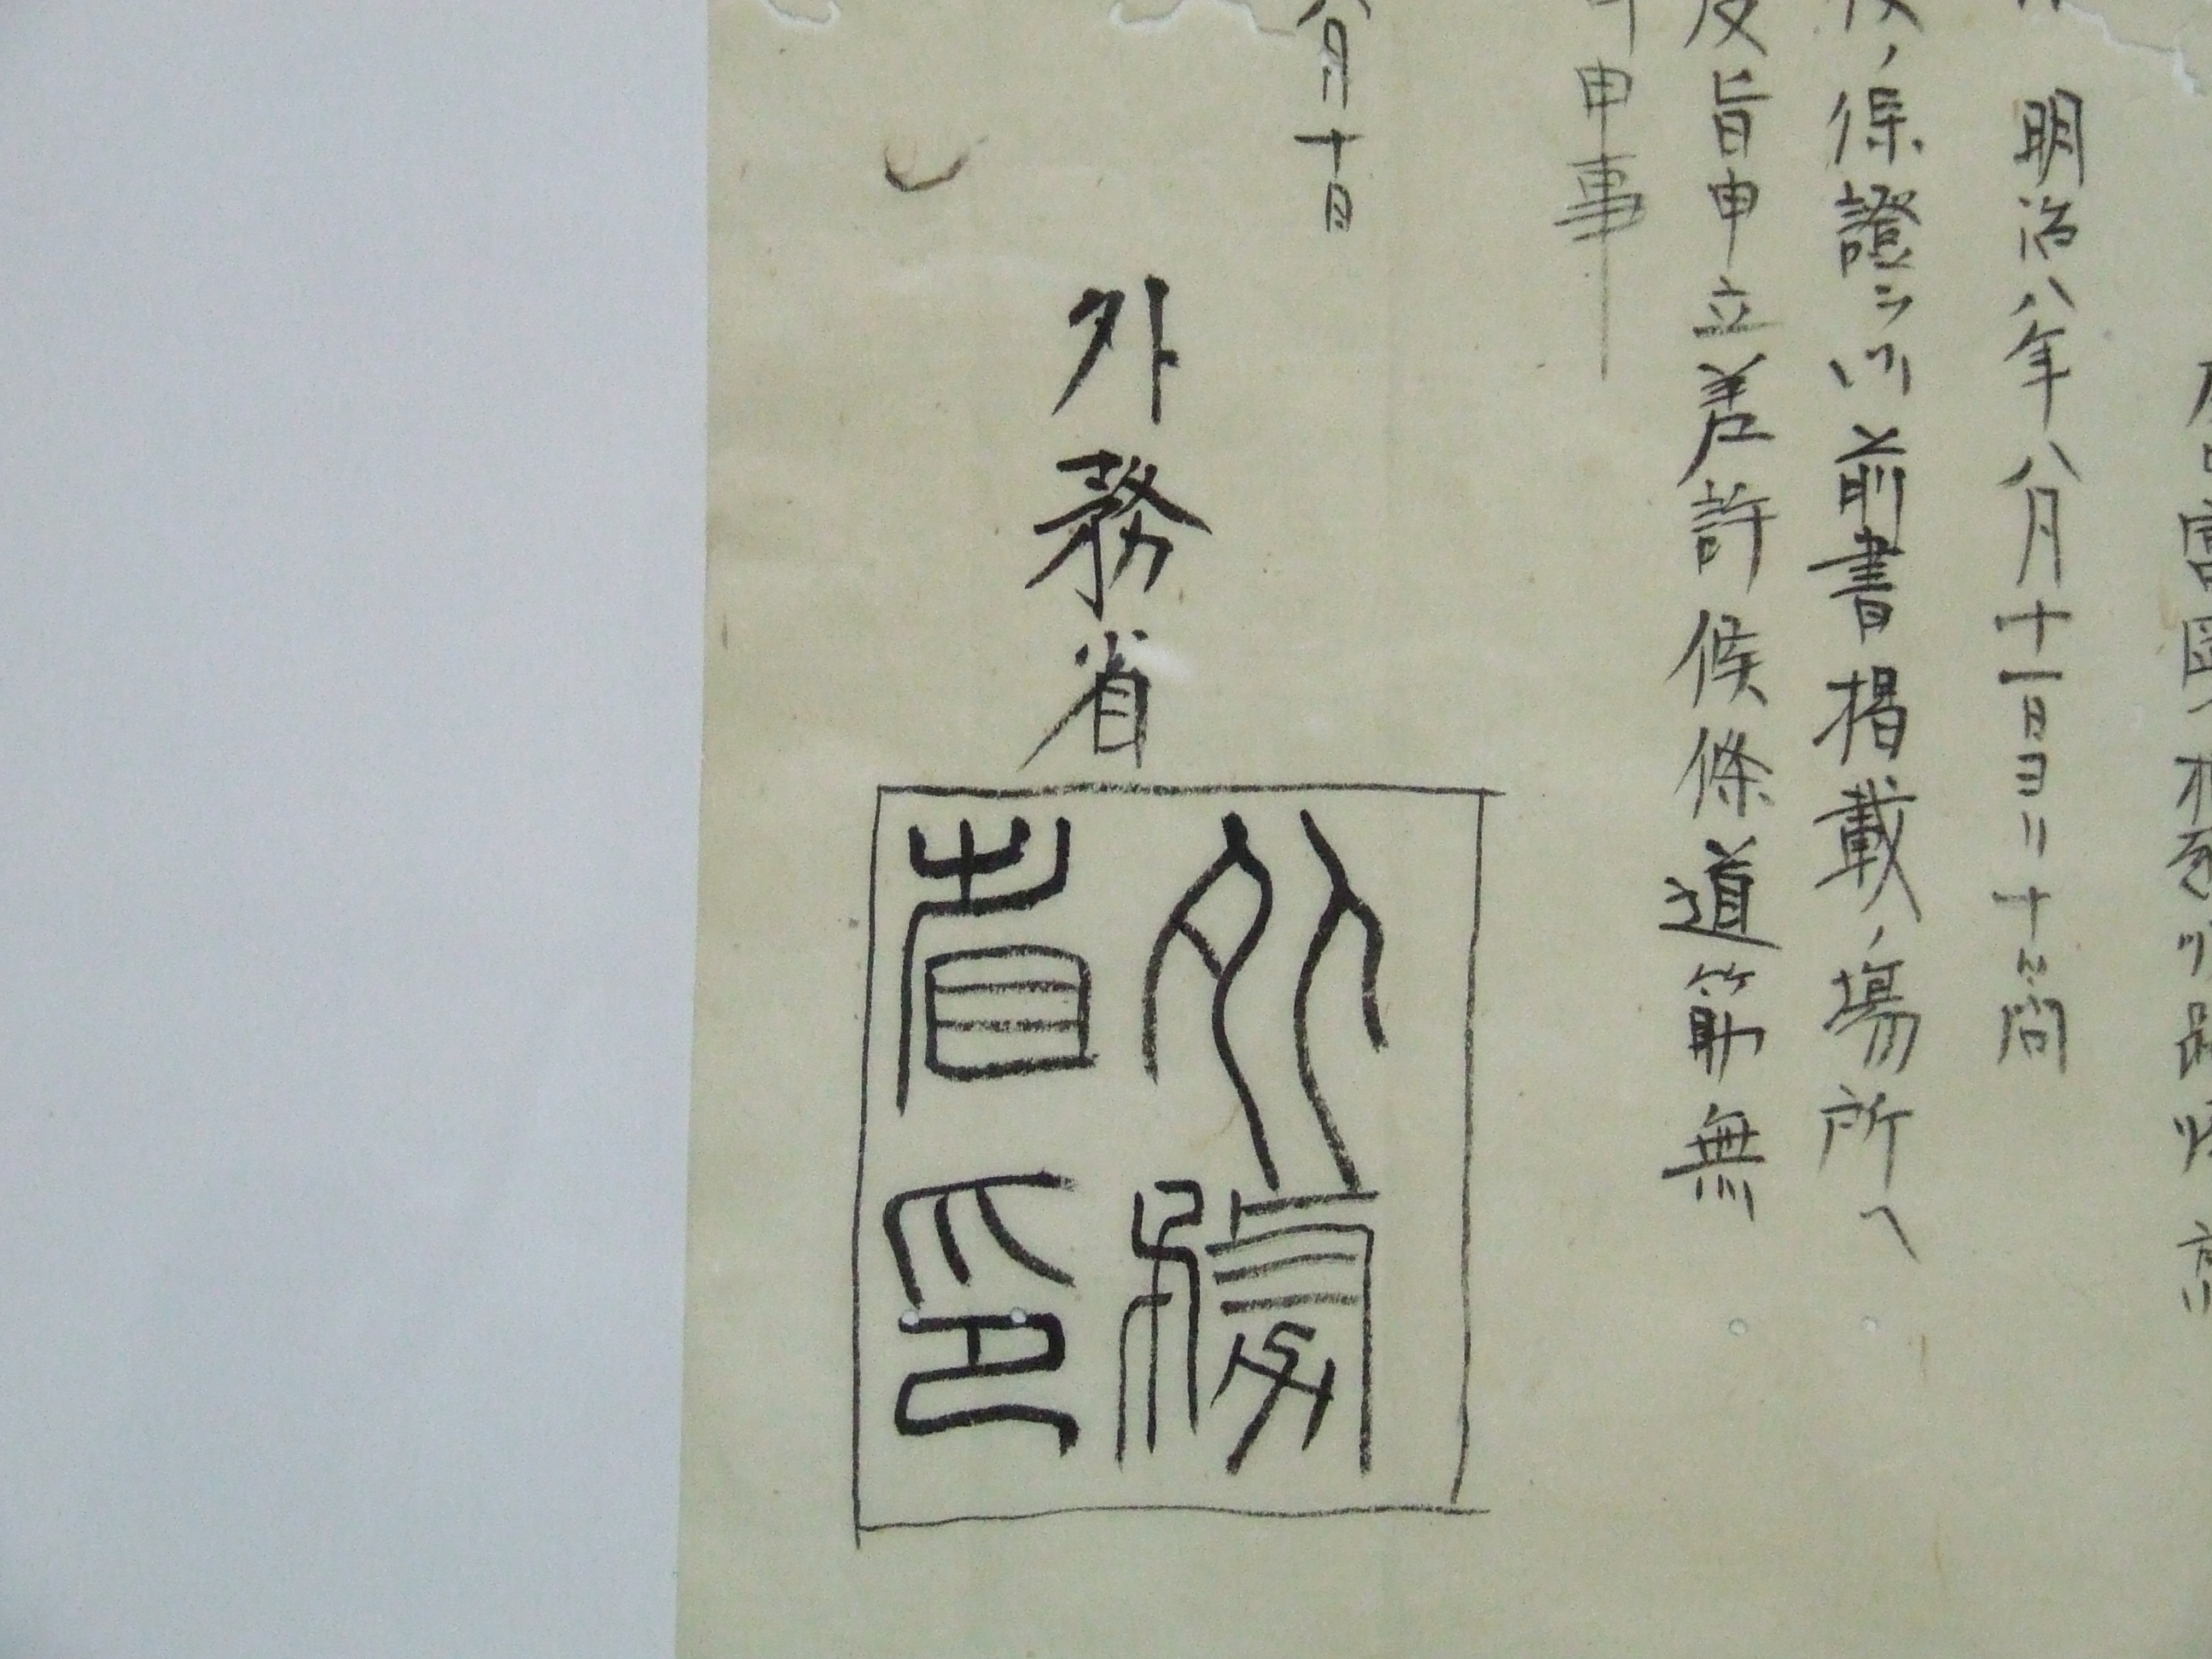 明治八年八月十一日ヨリ十ヶ間
ノ保證ヲ以前書掲載ノ場所ヘ
旨申立差許候條道筋無
申事
八月十日
外務省
外務
省印